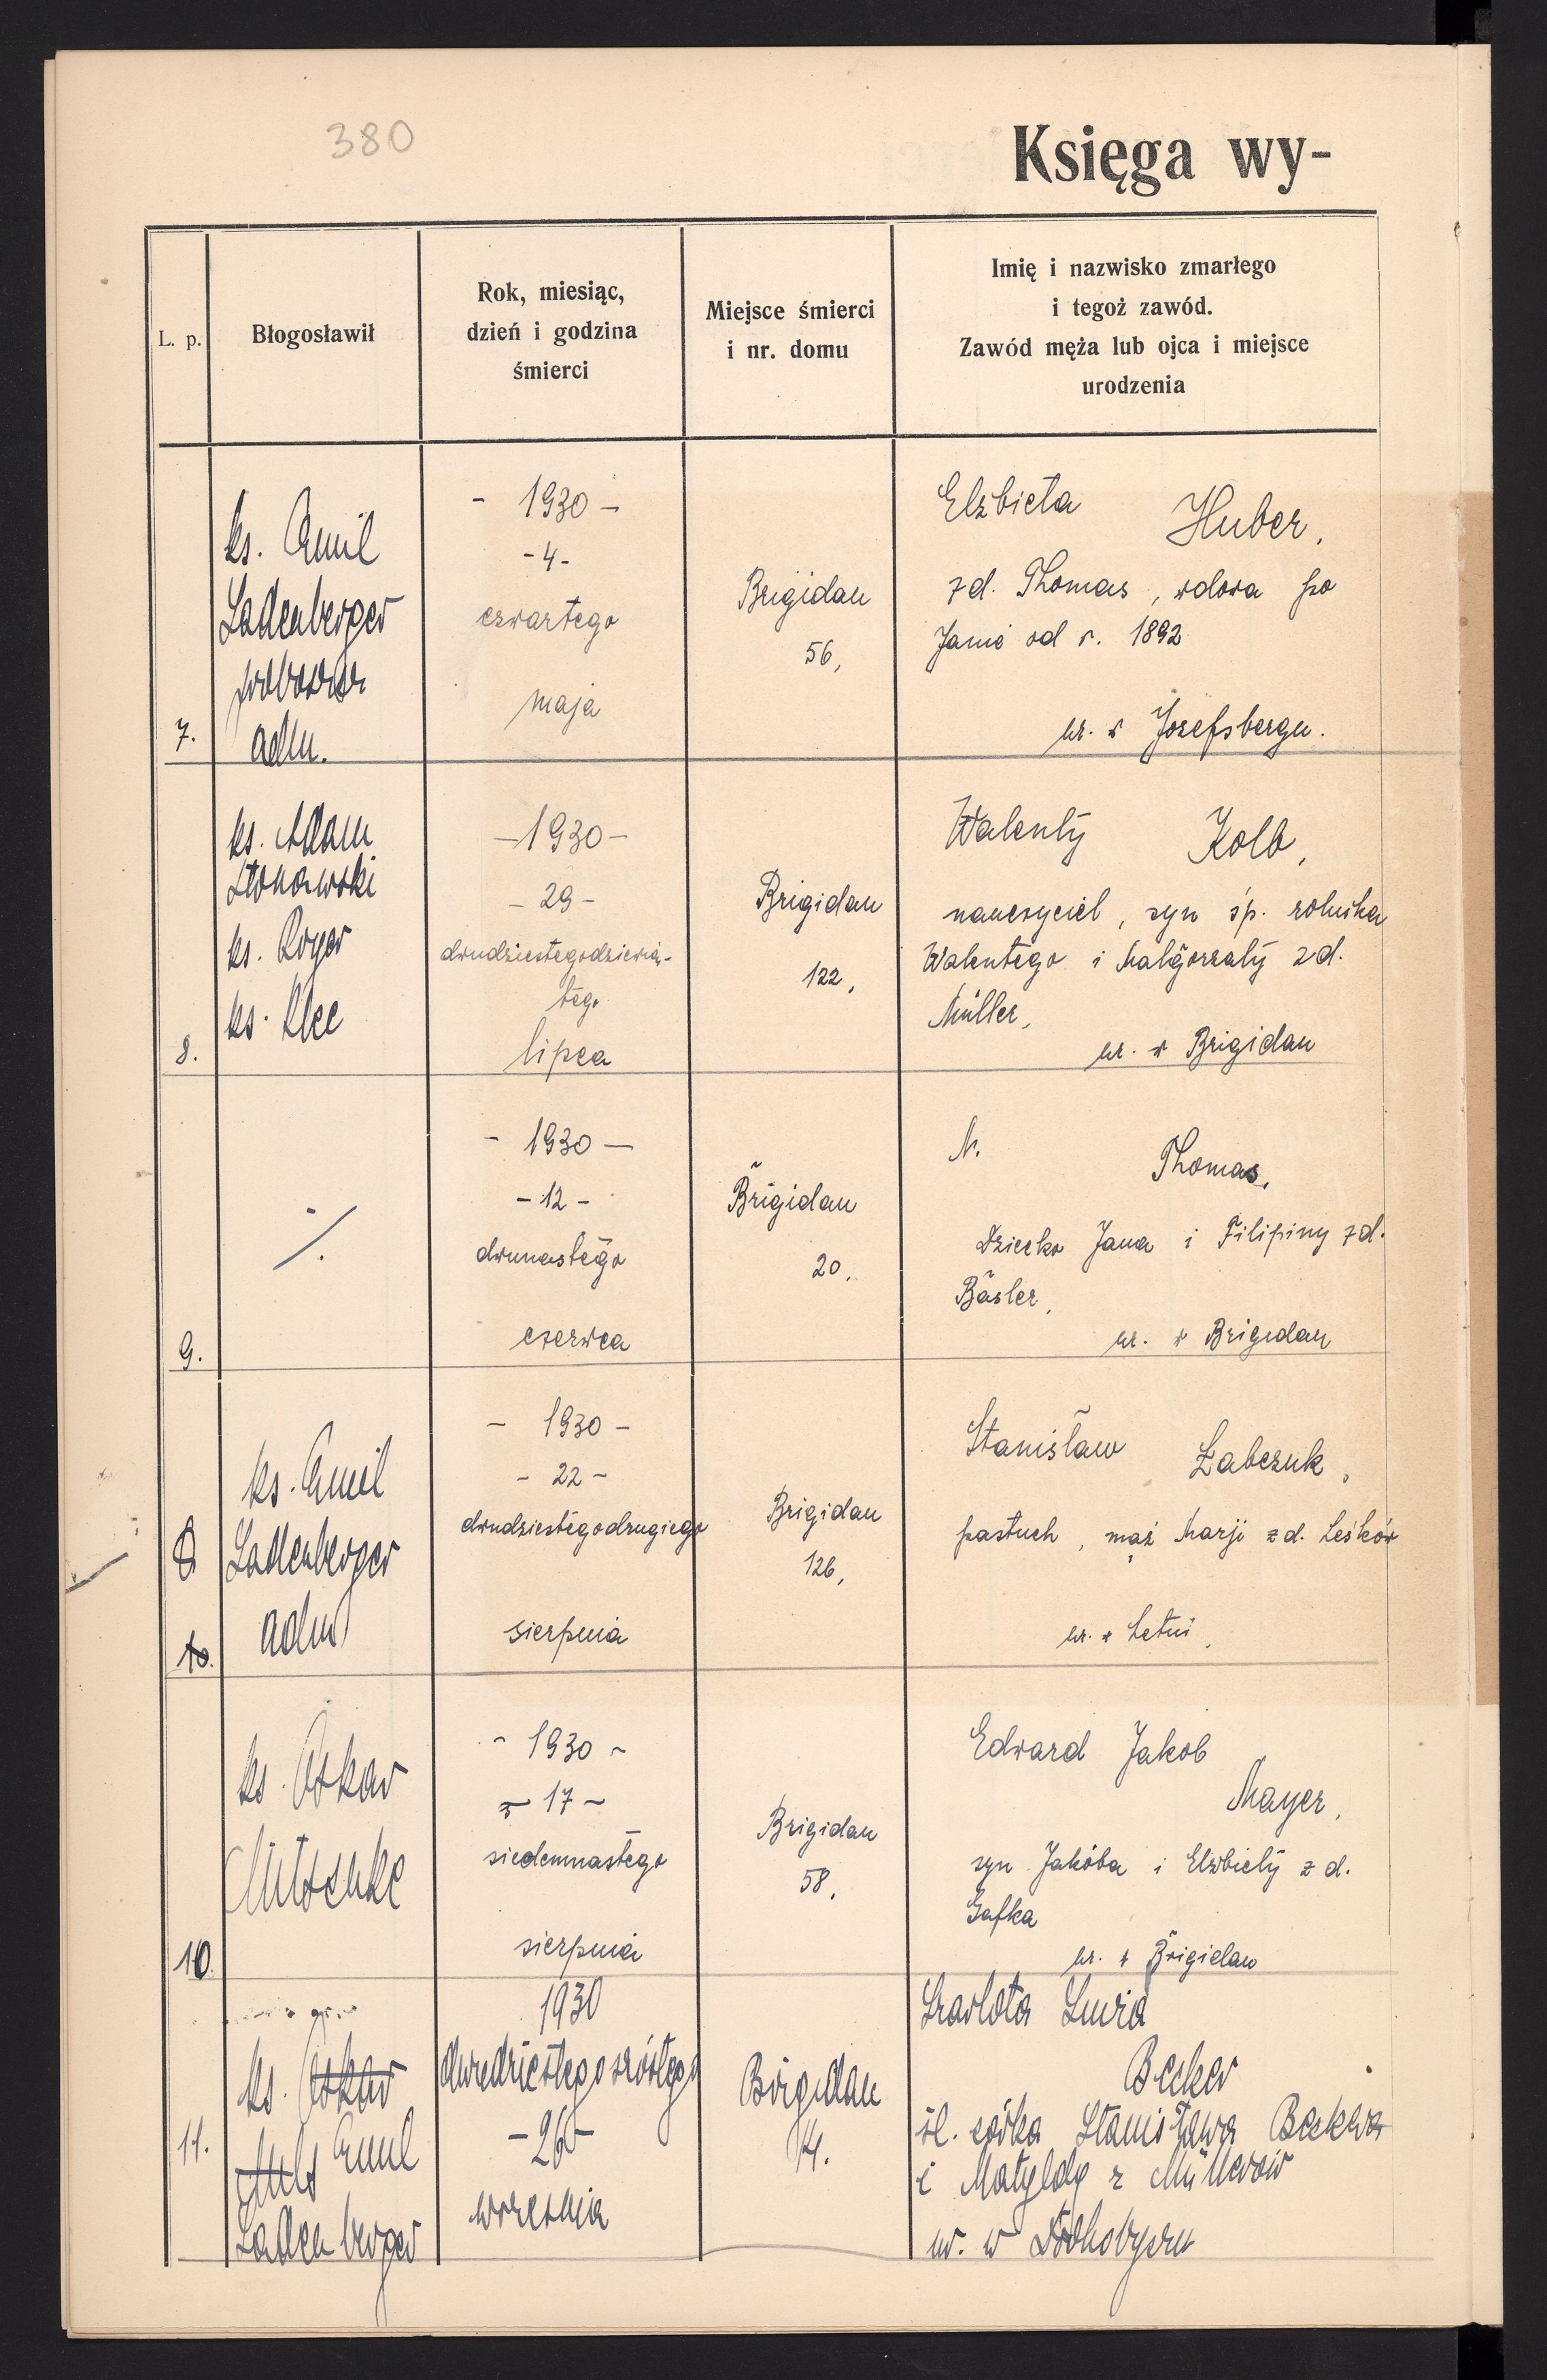 380
Księga wy-
L. p.
Błogosławił
Rok, miesiąc,
dzień i godzina
śmierci
Miejsce śmierci
i nr. domu
Imię i nazwisko zmarłego
i tegoż zawód.
Zawód męża lub ojca i miejsce
urodzenia
7.
ks. Emil
Ladenberger
adm.
- 1930 -
- 4 -
czwartego
maja
Brigidau
56,
Elżbieta Huber,
zd. Thomas, wdowa po
Janie od r. 1892
ur. w Josefsbergu.
8.
ks. Adam
Stonawski
ks. Royer
ks. Klee
- 1930 -
- 29 -
dwudziestegodziewią-
tego
lipca
Brigidau
122,
Walenty Kolb,
nauczyciel, syn śp. rolnika
Walentego i Małgorzaty zd.
Müller,
ur. w Brigidau
9.
./.
- 1930 -
- 12 -
dwunastego
czerwca
Brigidau
20,
N. Thomas,
Dziecko Jana i Filipiny zd.
Bäsler,
ur. w Brigidau
10.
ks. Emil
Ladenberger
adm
- 1930 -
- 22 -
dwudziestegodrugiego
sierpnia
Brigidau
126,
Stanisław Łabczuk,
pastuch, mąż Marji zd. Leśków
ur. w Letni,
10.
ks. Oskar
Mitschke
- 1930 -
- 17 -
siedemnastego
sierpnia
Brigidau
58,
Edward Jakob
Mayer,
syn Jakóba i Elżbiety zd.
Gafka
ur. w Brigidau
11.
ks. Oskar
Emil
Ladenberger
1930
dwudziestego szóstego
- 26 -
września
Brigidau
14.
Szarlota Luiza
Becker
śl. córka Stanisława Beckera
i Matyldy z Müllerów
ur. w Drohobyczu